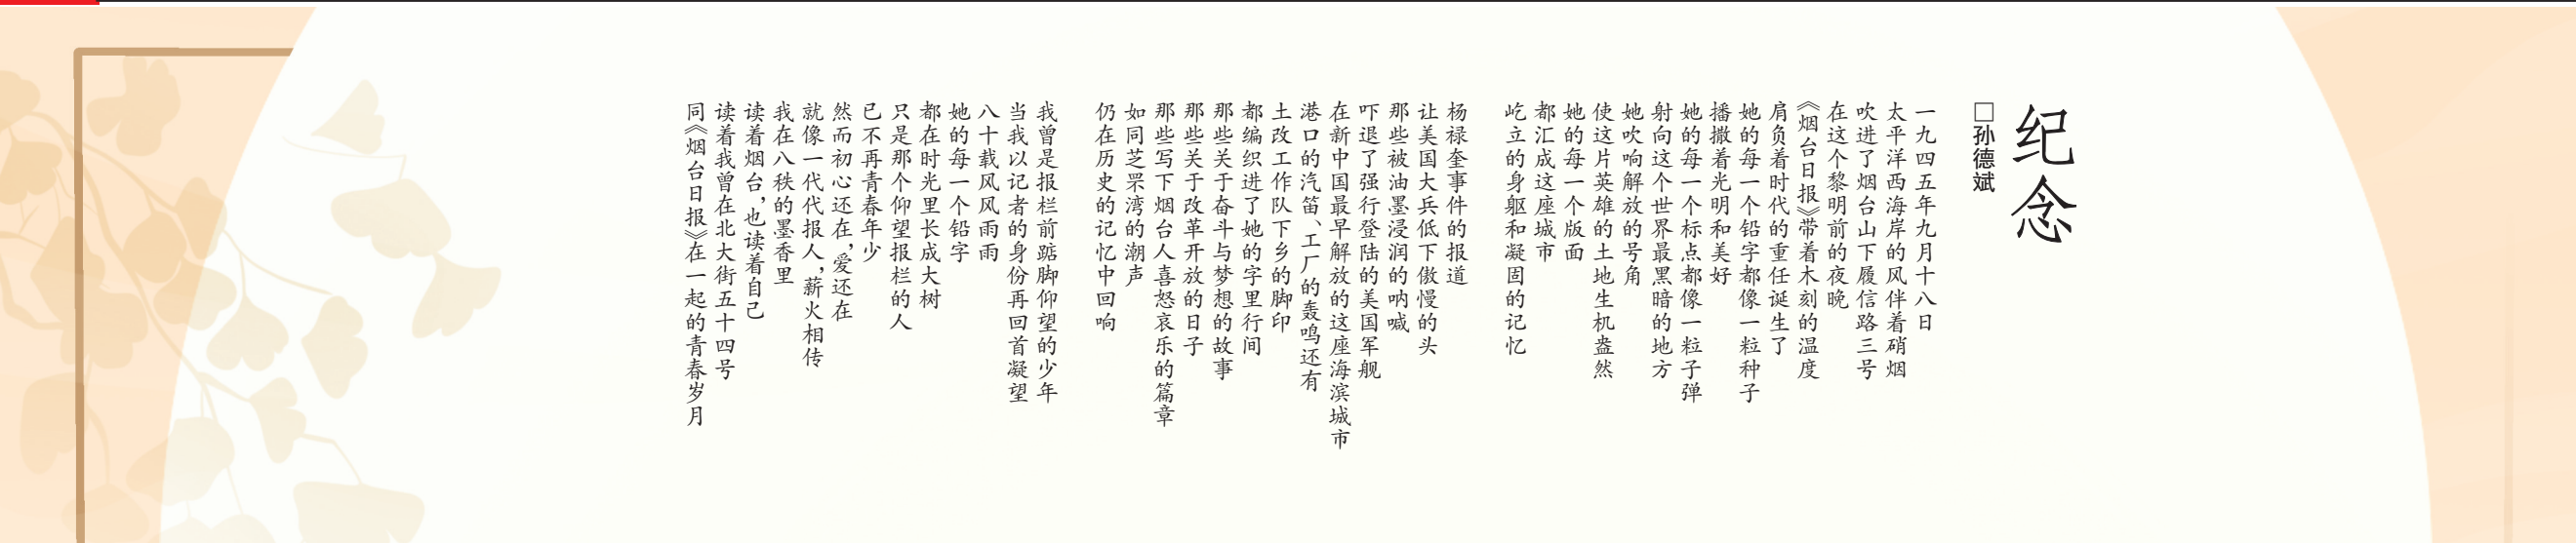 纪念
□孙德斌
一九四五年九月十八日
太平洋西海岸的风伴着硝烟
吹进了烟台山下履信路三号
在这个黎明前的夜晚
《烟台日报》带着木刻的温度
肩负着时代的重任诞生了
她的每一个铅字都像一粒种子
播撒着光明和美好
她的每一个标点都像一粒子弹
射向这个世界最黑暗的地方
她吹响解放的号角
使这片英雄的土地生机盎然
她的每一个版面
都汇成这座城市
屹立的身躯和凝固的记忆
杨禄奎事件的报道
让美国大兵低下傲慢的头
那些被油墨浸润的呐喊
吓退了强行登陆的美国军舰
在新中国最早解放的这座海滨城市
港口的汽笛、工厂的轰鸣还有
土改工作队下乡的脚印
都编织进了她的字里行间
那些关于奋斗与梦想的故事
那些关于改革开放的日子
那些写下烟台人喜怒哀乐的篇章
如同芝罘湾的潮声
仍在历史的记忆中回响
我曾是报栏前踮脚仰望的少年
当我以记者的身份再回首凝望
八十载风风雨雨
她的每一个铅字
都在时光里长成大树
只是那个仰望报栏的人
已不再青春年少
然而初心还在，爱还在
就像一代代报人，薪火相传
我在八秩的墨香里
读着烟台，也读着自己
读着我曾在北大街五十四号
同《烟台日报》在一起的青春岁月